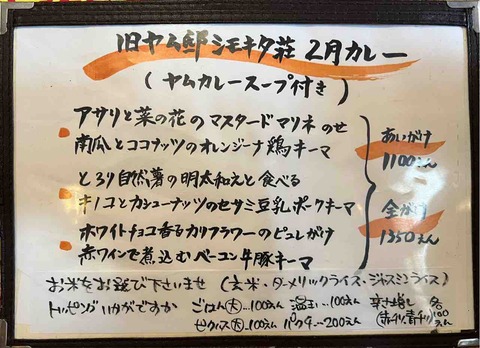 旧ヤム邸シモキタ荘 2月カレー
(ヤムカレースープ付き)
アサリと菜の花のマスタードマリネのせ
南瓜とココナッツのオレンジーナ鶏キーマ
とろり自然薯の明太和えと食べる
キノコとカシューナッツのセサミ豆乳ポークキーマ
ホワイトチョコ香るカリフラワーのピュレがけ
赤ワインで煮込むベーコン牛豚キーマ
あいがけ
1100えん
全がけ
1350えん
お米をお選び下さいませ (玄米・ターメリックライス・ジャスミンライス)
トッピングいかがですか
ごはん大…100えん 温玉…100えん 辛さ増し 各100えん
ピクルス大…100えん パクチー…200えん (赤チリ、青チリ)